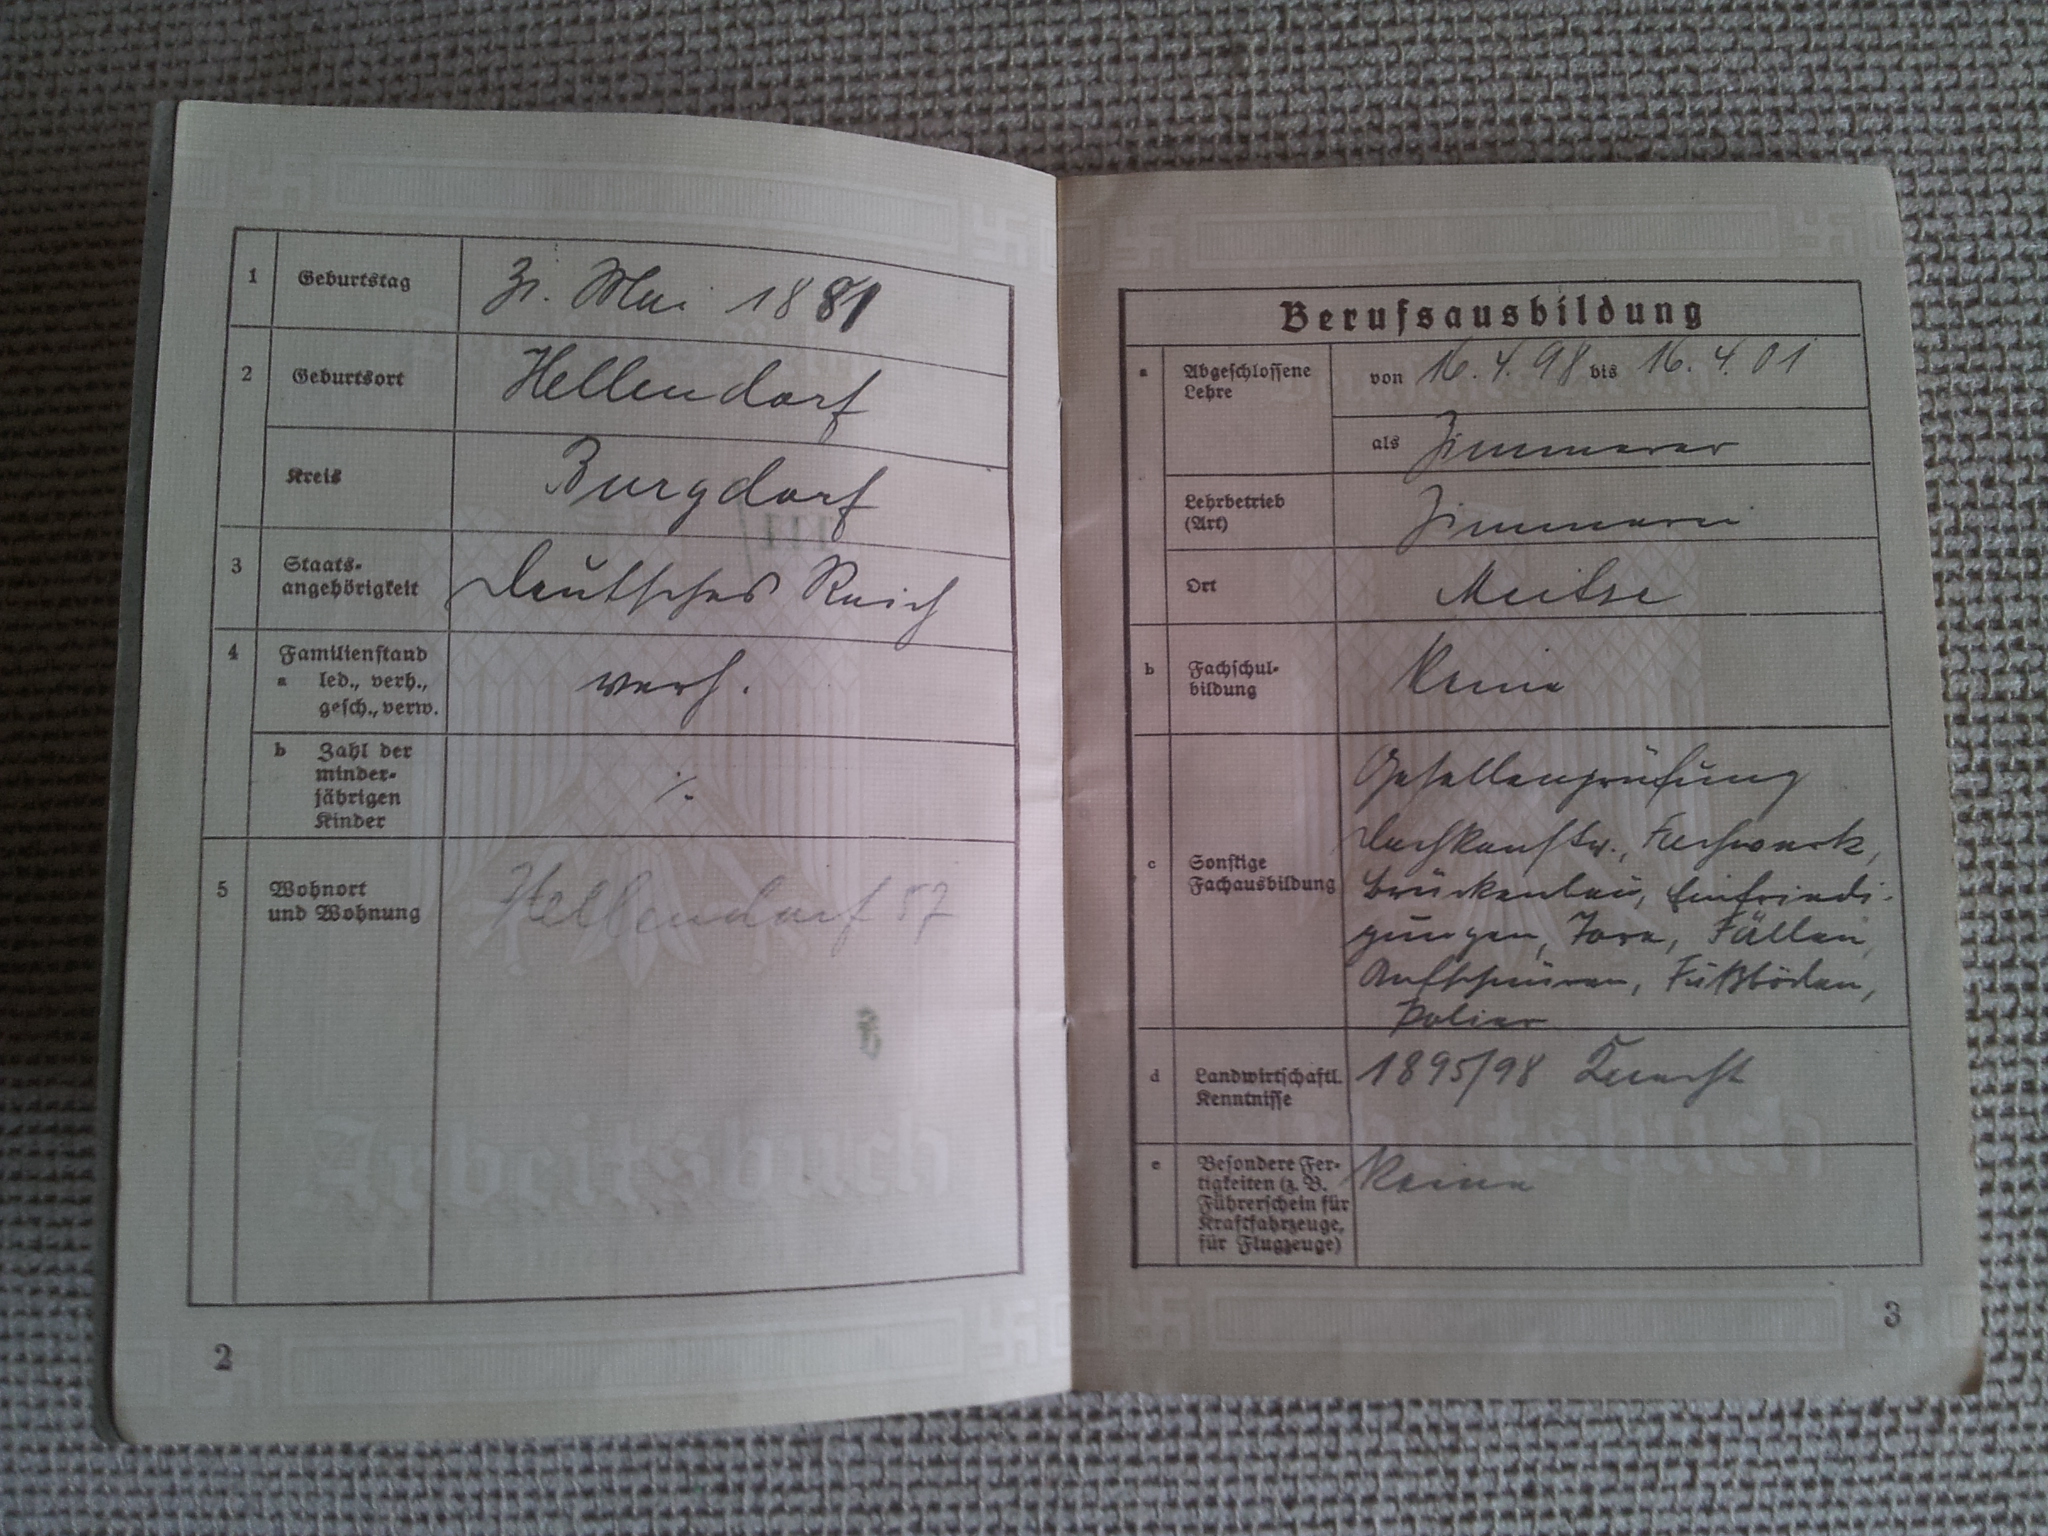 1 Geburtstag 31. Mai 1881
2 Geburtsort Hellendorf
Kreis Burgdorf
3 Staats-
angehörigkeit Deutsches Reich
4 Familienstand
a led., verh.,
gesch., verw. verh.
b Zahl der
minder-
jährigen
Kinder ./.
5 Wohnort
und Wohnung Hellendorf 57
Arbeitsbuch
2
Berufsausbildung
a Abgeschlossene
Lehre von 16.4.98 bis 16.4.01
als Zimmerer
Lehrbetrieb
(Art) Zimmerei
Ort Meitze
b Fachschul-
bildung Keine
c Sonstige
Fachausbildung
Gesellenprüfung
Fachwerk,
Brückenbau, Einfriedi-
gungen, Tore, Fällen,
Aufschnüren, Fußböden,
Polier
d Landwirtschaftl.
Kenntnisse 1895/98 Knecht
e Besondere Fer-
tigkeiten (z. B.
Führerschein für
Kraftfahrzeuge,
für Flugzeuge) Keine
Arbeitsbuch
3